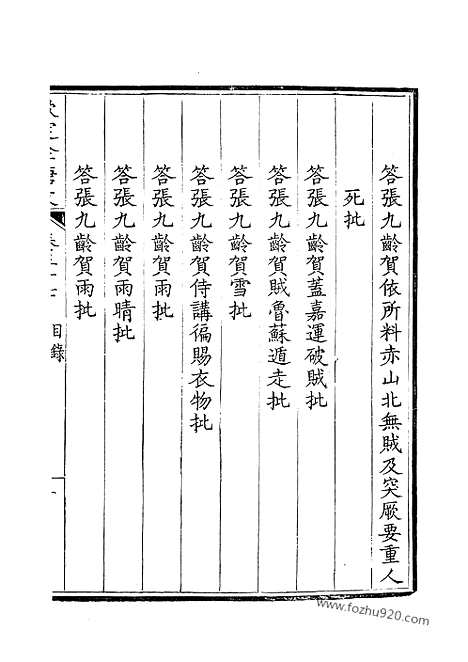 答張九齡賀依所料赤山北無賊及突厥要重人
死批
答張九齡賀蓋嘉運破賊批
答張九齡賀賊魯蘇遁走批
答張九齡賀雪批
答張九齡賀侍講徧賜衣物批
答張九齡賀雨批
答張九齡賀雨晴批
答張九齡賀雨批
目錄
www.fozhu920.com